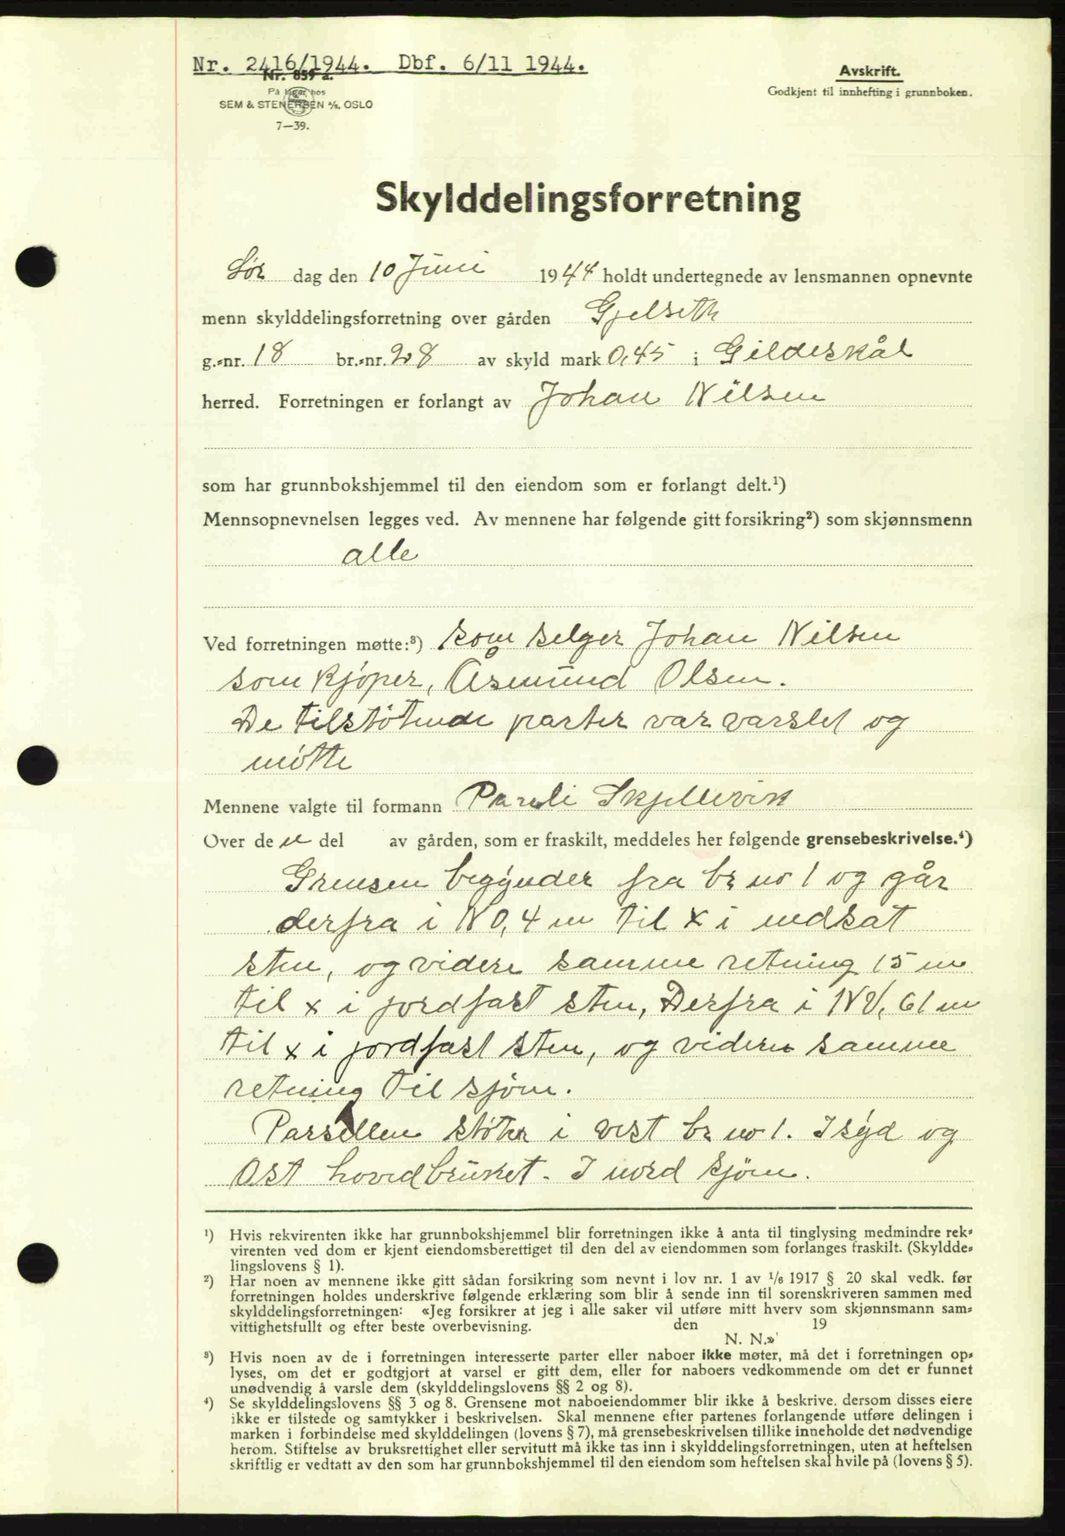 Nr. 2416/1944. Dbf. 6/11 1944.
Nr. 859 a.
På lager hos
SEM & STENERSEN A/S, OSLO
7—39.
Avskrift.
Godkjent til innhefting i grunnboken.
Skylddelingsforretning
Lør dag den 10 Juni 1944 holdt undertegnede av lensmannen opnevnte
menn skylddelingsforretning over gården Gjelseth
g.-nr. 18 br.-nr. 28 av skyld mark 0,45 i Gildeskål
herred. Forretningen er forlangt av Johan Nilsen
som har grunnbokshjemmel til den eiendom som er forlangt delt.¹)
Mennsopnevnelsen legges ved. Av mennene har følgende gitt forsikring²) som skjønnsmenn
alle
Ved forretningen møtte:³) som selger Johan Nilsen
som kjøper, Åsmund Olsen.
De tilstøtende parter var varslet og
møtte
Mennene valgte til formann Pareli Skjellvik
Over de n del av gården, som er fraskilt, meddeles her følgende grensebeskrivelse.⁴)
Grensen begynder fra br no 1 og går
derfra i NO, 4 m til x i nedsat
sten, og videre samme retning 15 m
til x i jordfast sten, Derfra i NV, 61 m
til x i jordfast sten, og videre samme
retning til sjøen.
Parsellen støter i vest br no 1. I syd og
Øst hovedbruket. I nord sjøen.
¹) Hvis rekvirenten ikke har grunnbokshjemmel blir forretningen ikke å anta til tinglysing medmindre rek-
virenten ved dom er kjent eiendomsberettiget til den del av eiendommen som forlanges fraskilt. (Skyldde-
lingslovens § 1).
²) Har noen av mennene ikke gitt sådan forsikring som nevnt i lov nr. 1 av 1/6 1917 § 20 skal vedk. før
forretningen holdes underskrive følgende erklæring som blir å sende inn til sorenskriveren sammen med
skylddelingsforretningen: «Jeg forsikrer at jeg i alle saker vil utføre mitt hverv som skjønnsmann sam-
vittighetsfullt og efter beste overbevisning. den 19
N. N.»
³) Hvis noen av de i forretningen interesserte parter eller naboer ikke møter, må det i forretningen op-
lyses, om det er godtgjort at varsel er gitt dem, eller for naboers vedkommende om det er funnet
unødvendig å varsle dem (skylddelingslovens §§ 2 og 8).
⁴) Se skylddelingslovens §§ 3 og 8. Grensene mot naboeiendommer blir ikke å beskrive, dersom disses eiere
ikke er tilstede og samtykker i beskrivelsen. Skal mennene efter partenes forlangende utføre delingen i
marken i forbindelse med skylddelingen (lovens § 7), må grensebeskrivelsen tillike inneholde det nødvendige
herom. Stiftelse av bruksrettighet eller servitutt må ikke tas inn i skylddelingsforretningen, uten at heftelsen
skriftlig er vedtatt av den som har grunnbokshjemmel til den eiendom som heftelsen skal hvile på (lovens § 5).